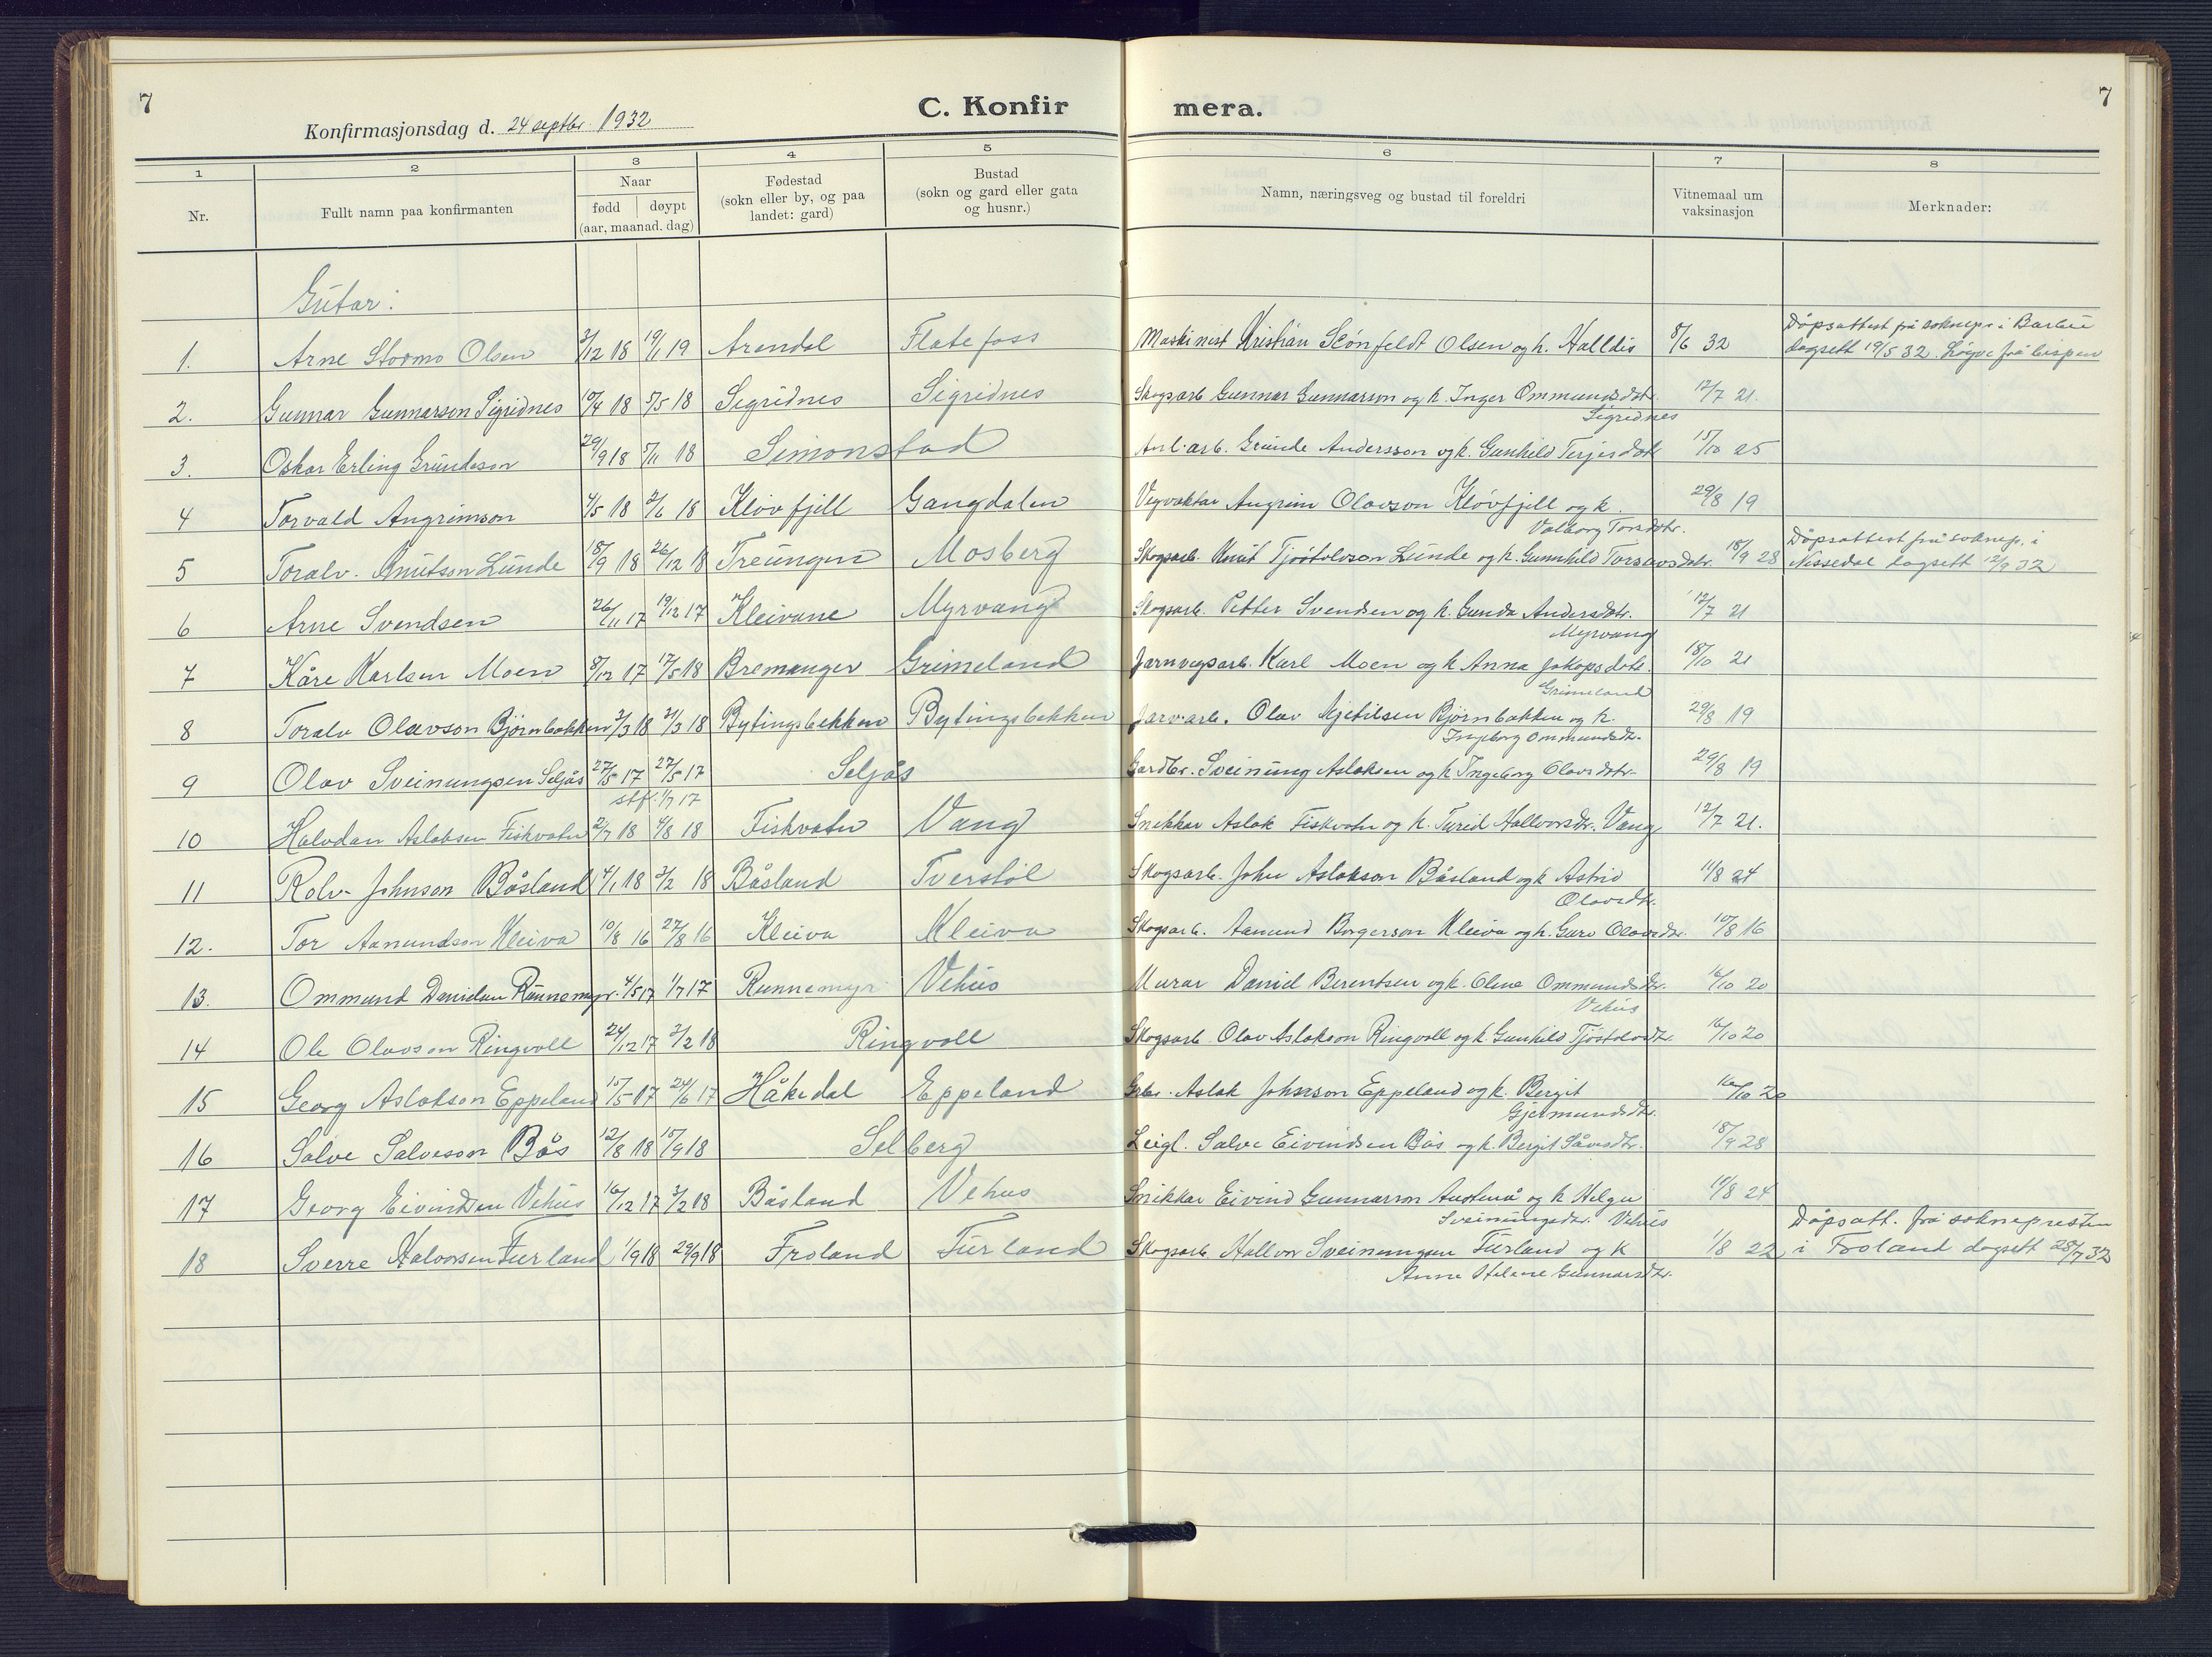 7
Konfirmasjonsdag d. 24 septbr. 1932
C. Konfir
mera.
7
1 2 3 4 5 6 7 8
Nr.
Fullt namn paa konfirmanten
Naar
født | døypt
(aar, maanad. dag)
Fødestad
(sokn eller by, og paa
landet: gard)
Bustad
(sokn og gard eller gata
og husnr.)
Namn, næringsveg og bustad til foreldri
Vitnemaal um
vaksinasjon
Merknader:
Gutar:
1. Arne Stormo Olsen 2/12 18 19/1 19 Arendal Flatefoss Maskinist Kristian Olsen og k. Halldis 8/6 32 Døpsattest frå soknepr. i Barbu
dagsett 19/5 32. Løyve frå bispen
2. Gunnar Gunnarson Sigridnes 10/4 18 5/5 18 Sigridnes Sigridnes Skogsarb. Gunnar Gunnarson og k. Inger Ommundsdotr. 12/7 21.
Sigridnes
3. Oskar Erling Grundeson 29/9 18 5/11 18 Simonstad Anl.arb. Grunde Andersson og k. Gunhild Terjesdotr 15/10 25
4 Torvald Angrimson 4/5 18 2/6 18 Kløvfjell Gangdalen Vegvaktar Angrim Olavson Kløvfjell og k. 29/8 19
Valborg Torsdotr.
5 Toralv Knutson Lunde 18/9 18 26/12 18 Treungen Mosberg Skogsarb. Knut Tjøstolvson Lunde og k. Gunnhild Torsavsdotr. 18/9 28 Døpsattest frå soknepr. i
Nissedal dagsett 12/9 32
6 Arne Svendsen 26/11 17 19/12 17 Kleivane Myrvang Skogsarb. Petter Svendsen og k. Gunda Andersdotr. 12/7 21
Myrvang
7 Kåre Karlsen Moen 8/12 17 17/5 18 Bremanger Grimeland Jarnvegsarb. Karl Moen og k Anna Jakopsdotr. 18/10 21
Grimeland
8 Toralv Olavson Bjørnbakken 2/3 18 31/3 18 Bytingsbekken Bytingsbekken Jarvarb. Olav Kjetilsen Bjørnbakken og k. 29/8 19
Ingeborg Ommundsdtr.
9 Olav Sveinungsen Seljås 27/5 17 27/5 17 Seljås Gardbr. Sveinung Aslaksen og k Ingeborg Olavsdotr. 29/8 19
stf. 1/7 17
10 Halvdan Aslaksen Fiskvatn 2/7 18 4/8 18 Fiskvatn Vang Snikkar Aslak Fiskvatn og k. Turid Hallvorsdtr. Vang 12/7 21.
11 Rolv Johnson Båsland 4/1 18 3/2 18 Båsland Tverstøl Skogsarb. John Aslakson Båsland og k Astrid 11/8 24
Olavsdtr.
12. Tor Aamundson Kleiva 10/8 16 27/8 16 Kleiva Kleiva Skogsarb. Aamund Borgerson Kleiva og k. Guro Olavsdtr. 10/8 16
13. Ommund Danielsen Runnemyr 4/5 17 1/7 17 Runnemyr Vehus Murar Daniel Berentsen og k. Olene Ommundsdtr. 16/10 20
Vehus
14 Ole Olavson Ringvoll 24/12 17 3/2 18 Ringvoll Skogsarb. Olav Aslakson Ringvoll og k. Gunhild Tjøstolvsdtr. 16/10 20
15 Georg Aslakson Eppeland 15/5 17 24/6 17 Håkedal Eppeland Gbr. Aslak Johnson Eppeland og k. Bergit 16/10 20
Gjermundsdtr.
16 Salve Salveson Bås 12/8 18 15/9 18 Selberg Leigl. Salve Eivindsen Bås og k. Bergit Såvesdtr. 18/9 28
17 Georg Eivindsen Vehus 16/12 17 3/2 18 Båsland Vehus Snikkar Eivind Gunnarson Austenå og k Helga 11/8 24
Sveinungsdtr. Vehus
18 Sverre Halvorsen Furland 1/9 18 29/9 18 Froland Furland Skogsarb. Hallvor Sveinungsen Furland og k 1/8 22 Døpsatt. frå soknepresten
i Froland dagsett 28/7 32
Anne Helene Gunnarsdtr.